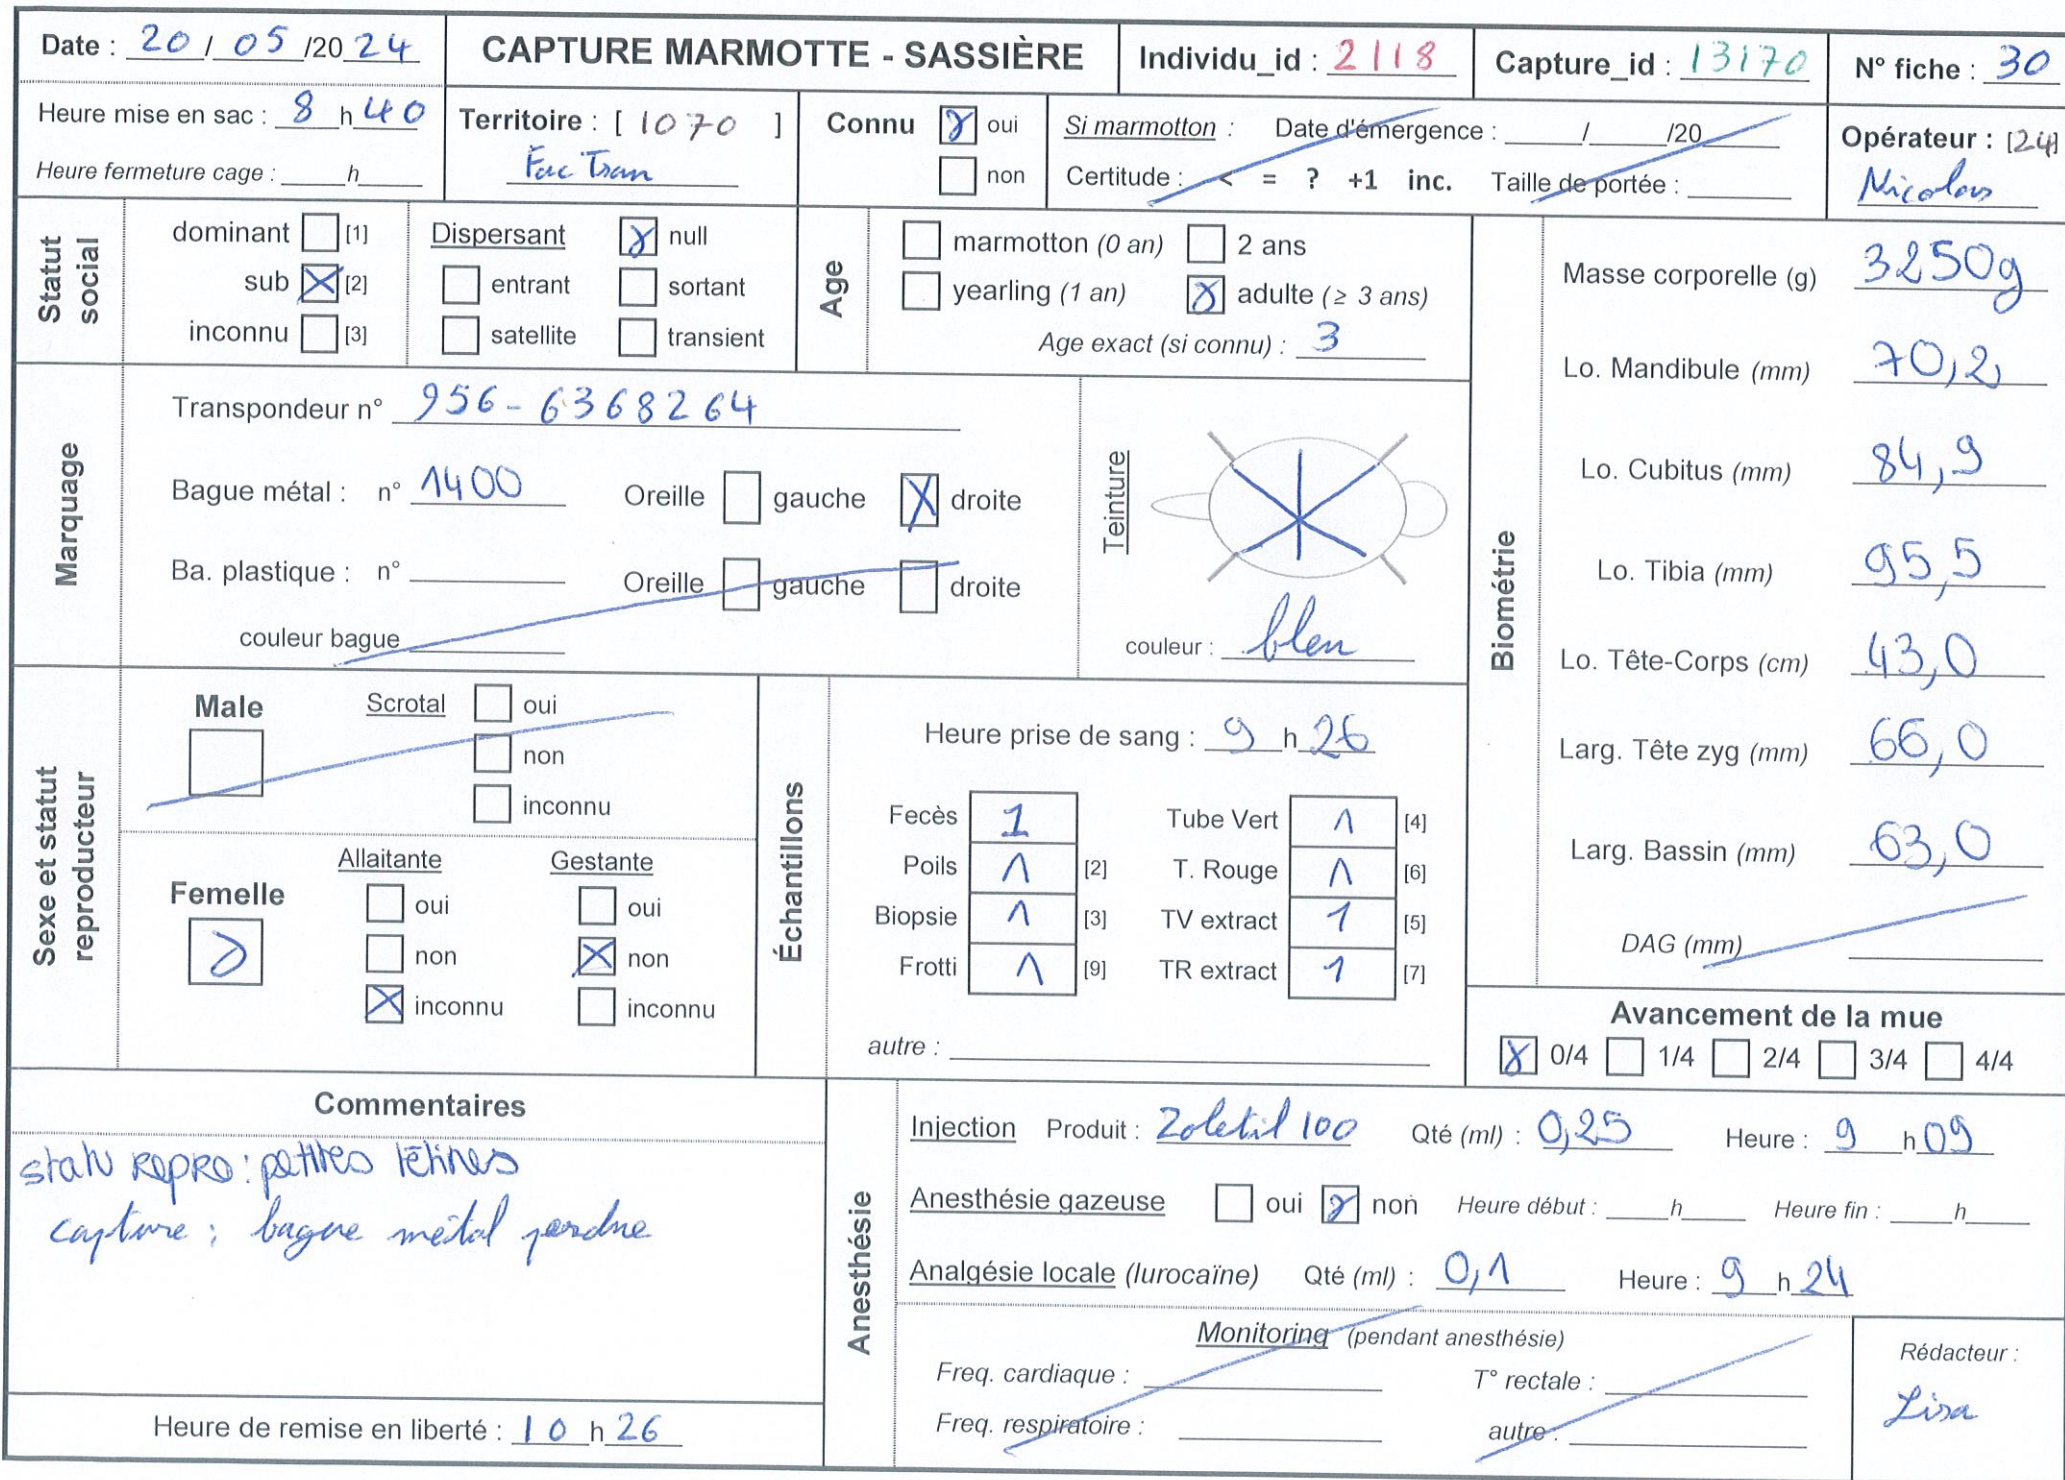 Date : 20 / 05 /2024
CAPTURE MARMOTTE - SASSIÈRE
Individu_id : 2118
Capture_id : 13170
N° fiche : 30
Heure mise en sac : 8 h 40
Heure fermeture cage : ____h____
Territoire : [ 1070 ]
Fac Tran
Connu oui
non
Si marmotton : Date d'émergence : ____/____/20____
Certitude : < = ? +1 inc. Taille de portée : ____
Opérateur : [24]
Nicolas
Statut social
dominant [1]
sub [2]
inconnu [3]
Dispersant null
entrant sortant
satellite transient
Age
marmotton (0 an) 2 ans
yearling (1 an) adulte (≥ 3 ans)
Age exact (si connu) : 3
Marquage
Transpondeur n° 956-6368264
Bague métal : n° 1400 Oreille gauche droite
Ba. plastique : n° ____ Oreille gauche droite
couleur bague ____
Teinture
couleur : bleu
Biométrie
Masse corporelle (g) 3250g
Lo. Mandibule (mm) 70,2
Lo. Cubitus (mm) 84,9
Lo. Tibia (mm) 95,5
Lo. Tête-Corps (cm) 43,0
Larg. Tête zyg (mm) 66,0
Larg. Bassin (mm) 63,0
DAG (mm) ____
Sexe et statut reproducteur
Male
Scrotal oui
non
inconnu
Femelle
Allaitante Gestante
oui oui
non non
inconnu inconnu
Échantillons
Heure prise de sang : 9 h 26
Fecès 1 Tube Vert 1 [4]
Poils 1 [2] T. Rouge 1 [6]
Biopsie 1 [3] TV extract 1 [5]
Frotti 1 [9] TR extract 1 [7]
autre : ____
Avancement de la mue
0/4 1/4 2/4 3/4 4/4
Commentaires
statu REPRO : petites tétines
capture : bague métal perdue
Heure de remise en liberté : 10 h 26
Anesthésie
Injection Produit : Zoletil 100 Qté (ml) : 0,25 Heure : 9 h 09
Anesthésie gazeuse oui non Heure début : ____h____ Heure fin : ____h____
Analgésie locale (lurocaïne) Qté (ml) : 0,1 Heure : 9 h 24
Monitoring (pendant anesthésie)
Freq. cardiaque : ____ T° rectale : ____
Freq. respiratoire : ____ autre : ____
Rédacteur :
Lisa